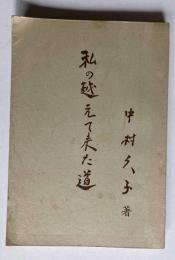 私の越えて来た道
中村久子著